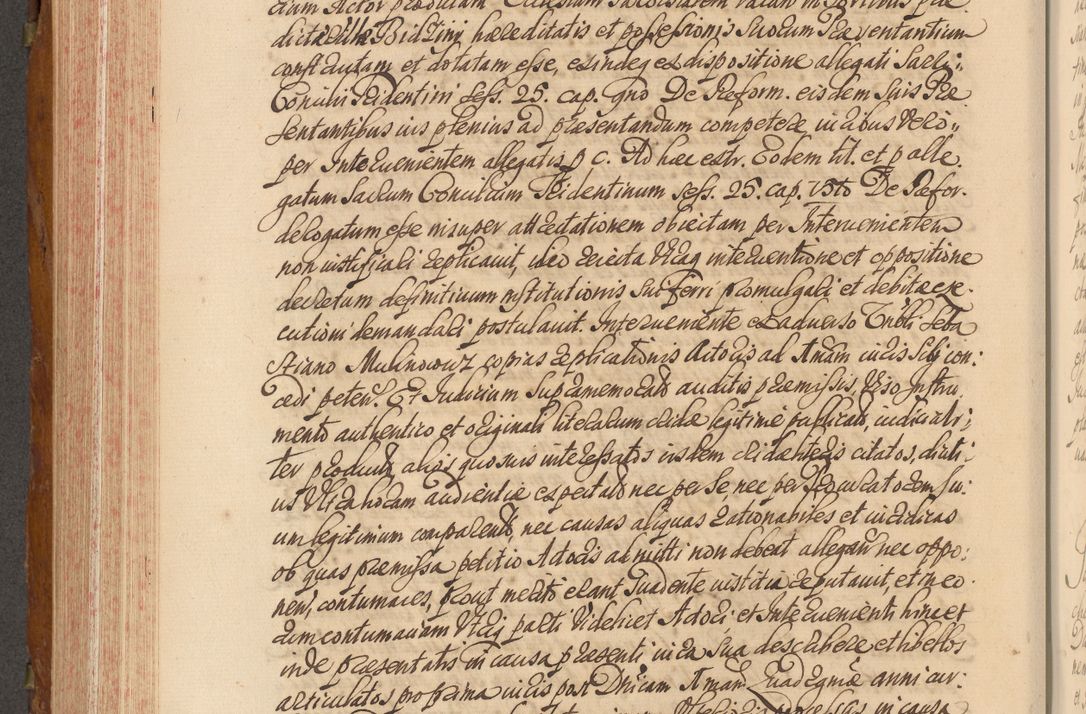 dictæ Villæ Bidziny hæreditatis et possessionis suorum Præventantium
constructam et dotatam esse, exindeq ex dispositione allegati Sacri,,
Concilii Tridentini Sess. 25. cap. qno De Reform. eisdem suis Præ
sentantibus ius plenius ad præsentandum competere iuribus vero,,
per Intervenientem allegatis p c. Ad hæc extr. Eodem tit. et p alle
gatum Sacrum Concilium Tridentinum sess. 25. cap. 15to De Refor.
derogatum esse nisuper attestationem obiectam per Intervenientem
non iustificari replicavit, ideo reiecta Utaq interventione et oppositione
decretum definitivum nstitutionis Sui ferri promulgari et debitæ exe.
cutioni demandari postulavit. Interveniente ex adverso Gnoso Seba
stiano Mulinowicz copias replicationis Actoris ad Amam iuris Sibi con:
cedi peten. Et Iudicium Supramemorato auditis præmissis, viso Instru
mento authentico et originali literarum cridæ legitime publicato, iudiciali:
ter producto aliis quosuis interessatos iisdem cridæ literis citatos, diuti:
us Ultra horam audientiæ expectato nec per se nec per Procuratorem su:
um legitimum comparent, nec causas aliquas rationabiles et iuridicas
ob quas præmissa petitio Actoris admitti non debeat allegan nec oppo:
nen, contumaces, prout merito erant Suadente iustitia reputavit, et in eo.
rum contumaciam Utriq parti videlicet Actori et Intervenienti hinc et
inde præsentatis in causa præsenti iura sua describere et libellos
articulatos pro prima iuris post Dnicam Amam Quadragmæ anni cur: